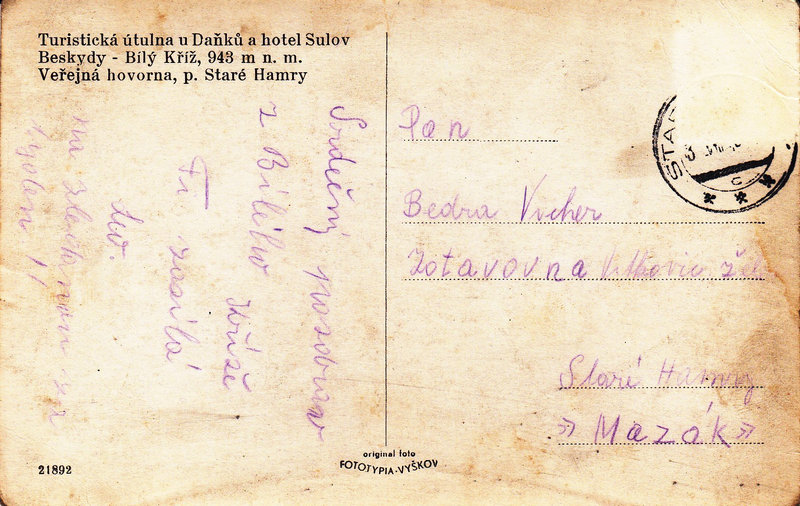 Turistická útulna u Daňků a hotel Sulov
Beskydy - Bílý Kříž, 943 m n. m.
Veřejná hovorna, p. Staré Hamry
Srdečný pozdrav
z Bílého Kříže
Ti zasílá
na
Pan
Bedra Vicher
Zotavovna
Staré Hamry
» Mazák »
STA
21892
original foto
FOTOTYPIA-VYŠKOV